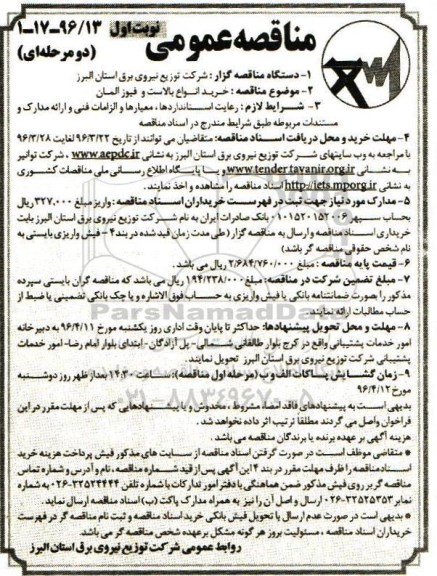 مناقصه عمومی
نوبت اول
۱-۱۷-۹۶/۱۳
(دو مرحله‌ای)
۱- دستگاه مناقصه گزار: شرکت توزیع نیروی برق استان البرز
۲- موضوع مناقصه: خرید انواع بالاست و فیوز المان
۳- شرایط لازم: رعایت استانداردها، معیارها و الزامات فنی و ارائه مدارک و
مستندات مربوطه طبق شرایط مندرج در اسناد مناقصه
۴- مهلت خرید و محل دریافت اسناد مناقصه: متقاضیان می توانند از تاریخ ۹۶/۳/۲۲ لغایت ۹۶/۳/۲۸
با مراجعه به وب سایتهای شرکت توزیع نیروی برق استان البرز به نشانی www.aepdc.ir ، شرکت توانیر
به نشانی www.tender.tavanir.org.ir و یا پایگاه اطلاع رسانی ملی مناقصات کشوری
به نشانی http://iets.mporg.ir اسناد مناقصه را مشاهده و اخذ نمایند.
۵- مدارک مورد نیاز جهت ثبت در فهرست خریداران اسناد مناقصه: واریز مبلغ ۳۲۷,۰۰۰ ریال
بحساب سپهر ۰۱۰۱۵۲۰۱۵۲۰۰۶ بانک صادرات ایران به نام شرکت توزیع نیروی برق استان البرز بابت
خریداری اسناد مناقصه و ارسال به مناقصه گزار (طی مدت زمان قید شده در بند ۴ - فیش واریزی بایستی به
نام شخص حقوقی مناقصه گر باشد)
۶- قیمت پایه مناقصه: مبلغ ۲/۶۸۴/۷۶۰/۰۰۰ ریال می باشد.
۷- مبلغ تضمین شرکت در مناقصه: مبلغ ۱۹۴/۲۳۸/۰۰۰ ریال می باشد که مناقصه گران بایستی سپرده
مذکور را بصورت ضمانتنامه بانکی یا فیش واریزی به حساب فوق الاشاره و یا چک بانکی تضمینی یا ضبط از
حساب مطالبات ارائه نمایند.
۸- مهلت و محل تحویل پیشنهادها: حداکثر تا پایان وقت اداری روز یکشنبه مورخ ۹۶/۴/۱۱ به دبیرخانه
امور خدمات پشتیبانی واقع در کرج بلوار طالقانی شمالی- پل آزادگان- ابتدای بلوار امام رضا- امور خدمات
پشتیبانی شرکت توزیع نیروی برق استان البرز تحویل نمایند.
۹- زمان گشایش پاکات الف و ب (مرحله اول مناقصه): ساعت ۱۴:۳۰ بعداز ظهر روز دوشنبه
مورخ ۹۶/۴/۱۲
بدیهی است به پیشنهادهای فاقد امضاء، مشروط، مخدوش و یا پیشنهادهایی که پس از مهلت مقرر در این
فراخوان واصل می گردند مطلقاً ترتیب اثر داده نخواهد شد.
هزینه آگهی بر عهده برنده یا برندگان مناقصه می باشد.
* متقاضی موظف است در صورت گرفتن اسناد مناقصه از سایت های مذکور فیش پرداخت هزینه خرید
اسناد مناقصه را ظرف مهلت مقرر در بند ۴ این آگهی پس از قید شماره مناقصه، نام و آدرس و شماره تماس
مناقصه گر بر روی فیش مذکور ضمن هماهنگی با دفتر امور تدارکات با شماره تلفن ۳۲۵۲۴۴۴۴-۰۲۶ به شماره
نمابر ۳۲۵۲۵۳۵۳-۰۲۶ ارسال و اصل آن را نیز به همراه مدارک پاکت (ب) اسناد مناقصه ارسال نماید.
* بدیهی است در صورت عدم ارسال یا تحویل فیش بانکی خرید اسناد مناقصه و ثبت نام مناقصه گر در فهرست
خریداران اسناد مناقصه، مسئولیت بروز هر گونه مشکل بر عهده شخص مناقصه گر می باشد.
روابط عمومی شرکت توزیع نیروی برق استان البرز
ParsNamadData
۰۲۱-۸۸۳۴۹۶۷۰-۵